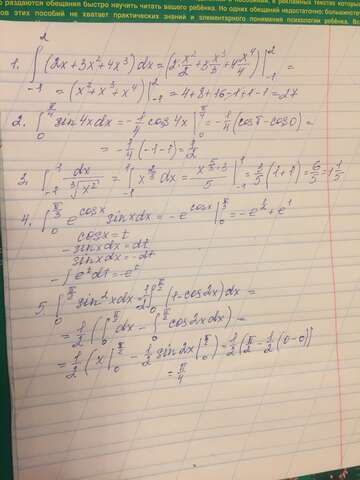 раздаются обещания быстро научить читать вашего ребёнка. Но одних обещаний недостаточно: большинству
пособий не хватает практических знаний и элементарного понимания психологии ребёнка.
1. ∫₋₁² (2x+3x²+4x³)dx = (2·x²/2+3x³/3+4x⁴/4)|₋₁² =
= (x²+x³+x⁴)|₋₁² = 4+8+16-1+1-1=27
2. ∫₀^(π/4) sin4xdx = -1/4 cos4x|₀^(π/4) = -1/4(cosπ-cos0) =
= -1/4(-1-1)=1/2
3. ∫₋₁¹ dx/∛x² = ∫₋₁¹ x^(2/3) dx = x^(5/3)·3/5|₋₁¹ = 3/5(1+1)=6/5=1 1/5
4. ∫₀^(π/3) e^(cosx) sinxdx = -e^(cosx)|₀^(π/3) = -e^(1/2)+e¹
cosx=t
-sinxdx=dt
sinxdx=-dt
-∫e^t dt=-e^t
5. ∫₀^(π/2) sin²xdx = 1/2∫₀^(π/2)(1-cos2x)dx =
= 1/2(∫₀^(π/2) dx - ∫₀^(π/2) cos2xdx) =
= 1/2(x|₀^(π/2) - 1/2 sin2x|₀^(π/2)) = 1/2(π/2-1/2(0-0))
= π/4